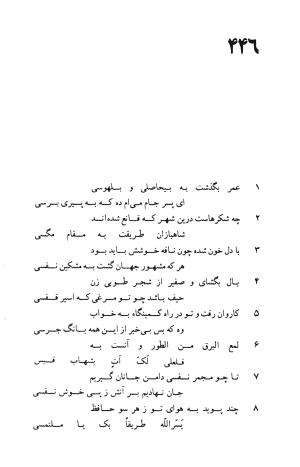 ۴۴۶
۱ عمر بگذشت به بیحاصلی و بلهوسی
ای پسر جام می‌ام ده که به پیری برسی
۲ چه شکرهاست درین شهر که قانع شده‌اند
شاهبازان طریقت به مقام مگسی
۳ با دل خون شده چون نافه خوشش باید بود
هر که مشهور جهان گشت به مشکین نفسی
۴ بال بگشای و صفیر از شجر طوبی زن
حیف باشد چو تو مرغی که اسیر قفسی
۵ کاروان رفت و تو در راه کمینگاه به خواب
وه که بس بی‌خبر از این همه بانگ جرسی
۶ لمع البرق من الطور و آنست به
فلعلی لک آت بشهاب قبس
۷ تا چو مجمر نفسی دامن جانان گیریم
جان نهادیم بر آتش ز پی خوش نفسی
۸ چند پوید به هوای تو ز هر سو حافظ
یسّر اللّه طریقاً بک یا ملتمسی